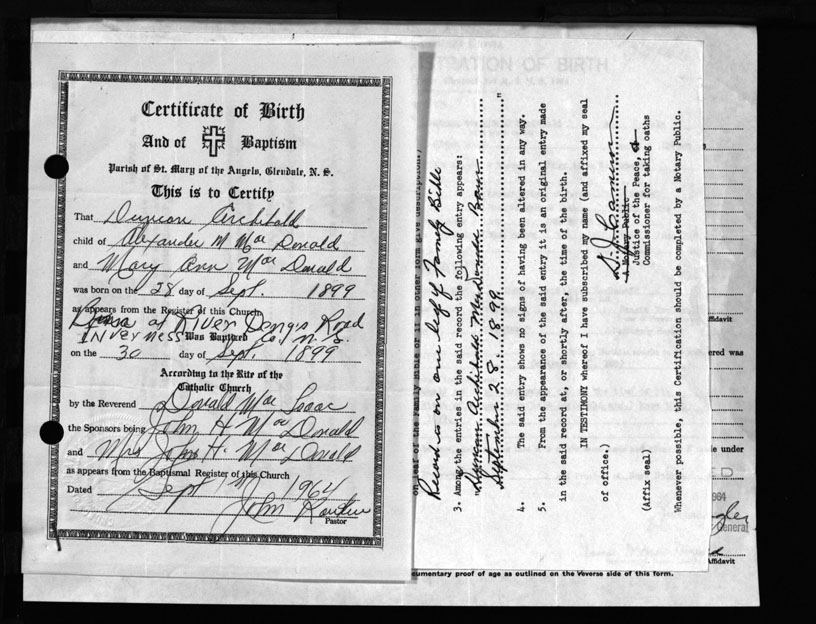 Certificate of Birth
And of Baptism
Parish of St. Mary of the Angels, Glendale, N. S.
This is to Certify
That Duncan Archibald
child of Alexander M Mac Donald
and Mary Ann Mac Donald
was born on the 28 day of Sept. 1899
as appears from the Register of this Church
at River Denys Road
Inverness Co. N. S.
Was Baptized
on the 30 day of Sept. 1899
According to the Rite of the
Catholic Church
by the Reverend Donald Mac Isaac
the Sponsors being John H Mac Donald
and Mrs John H. Mac Donald
as appears from the Baptismal Register of this Church
Dated Sept 1964
John
Pastor
on leaf of the Family Bible or if in other form give description)
Record is on one leaf of Family Bible
3. Among the entries in the said record the following entry appears:
"Duncan Archibald MacDonald Born
September 28 1899"
4. The said entry shows no signs of having been altered in any way.
5. From the appearance of the said entry it is an original entry made
in the said record at, or shortly after, the time of the birth.
IN TESTIMONY whereof I have subscribed my name (and affixed my seal
of office.)
D. J. Cameron
A Notary Public
Justice of the Peace, a
Commissioner for taking oaths
(Affix seal)
Whenever possible, this Certification should be completed by a Notary Public.
STRATION OF BIRTH
ffidavit
ered was
de under
ED
964
General
Affidavit
cumentary proof of age as outlined on the reverse side of this form.